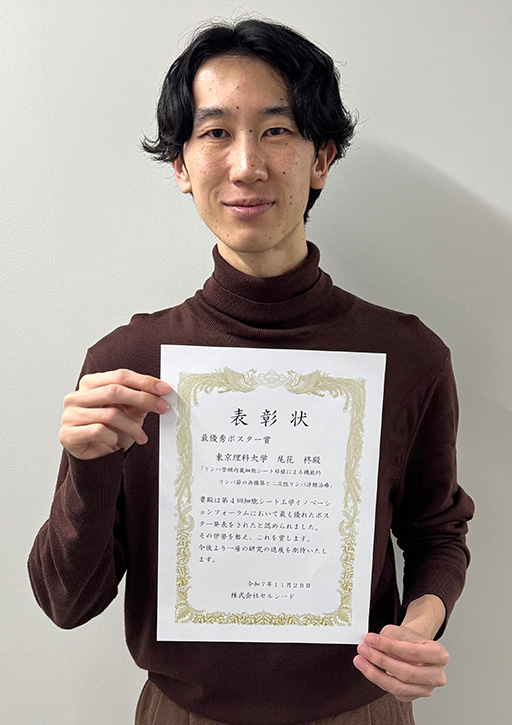 表彰状
最優秀ポスター賞
東京理科大学 尾花 柊殿
「リンパ管域内蔵細胞シート移植による機能的
リンパ節の再構築と二次性リンパ浮腫治療」
貴殿は第4回細胞シート工学イノベーシ
ョンフォーラムにおいて最も優れたポス
ター発表をされたと認められました。
その学誉を称え、これを賞します。
今後より一層の研究の進展を期待いたし
ます。
令和7年11月28日
株式会社セルシード